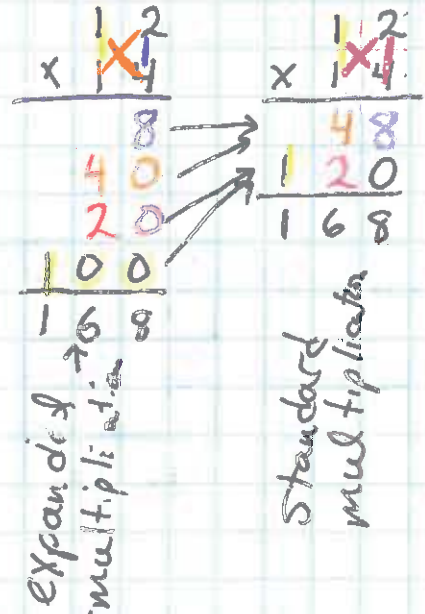 12
x 14
8
40
20
100
168
expanded
multiplication
12
x 14
48
120
168
Standard
multiplication